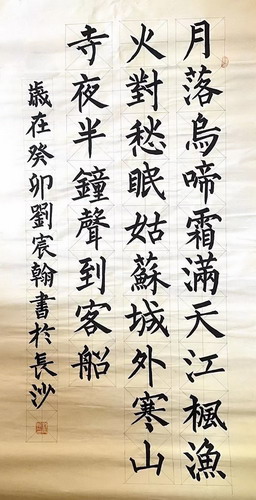 月落烏啼霜滿天江楓漁
火對愁眠姑蘇城外寒山
寺夜半鐘聲到客船
歲在癸卯劉宸翰書於長沙